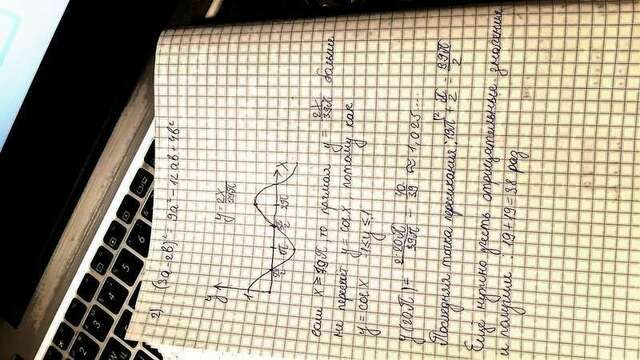 2) (3a-2b)² = 9a² - 12ab + 4b²
y
y = 2x/39π
1
π/2
π
3π/2
2π
x
если x = 39π, то прямая y = 2x/39π больше
не пересеч y = cos x, потому как
y = cos x -1≤y≤1
y(20π) = 2·20π/39π = 40/39 ≈ 1,025...
Последняя точка пресикания: 19π + π/2 = 39π/2
Ещё нужно учесть отрицательные значения
и получим: 19+19=38 раз